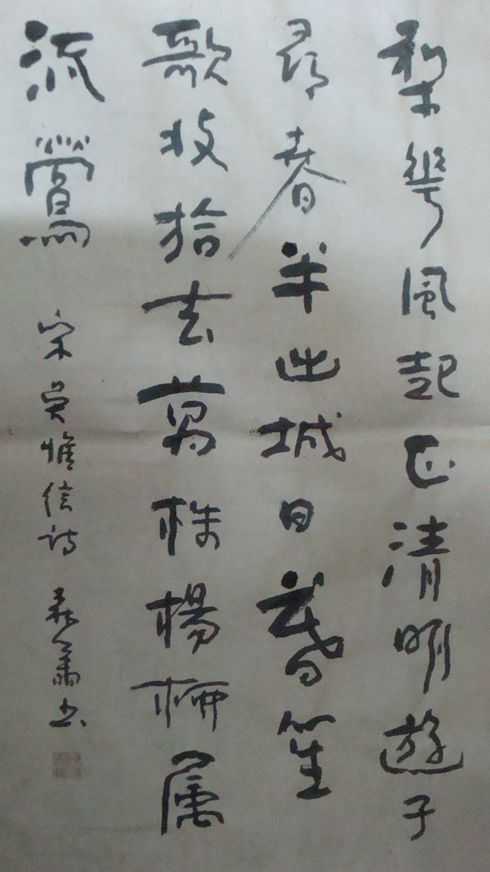 梨華風起正清明遊子
尋春半出城日暮笙
歌收拾去萬株楊柳属
流鶯 宋吳惟信詩 书